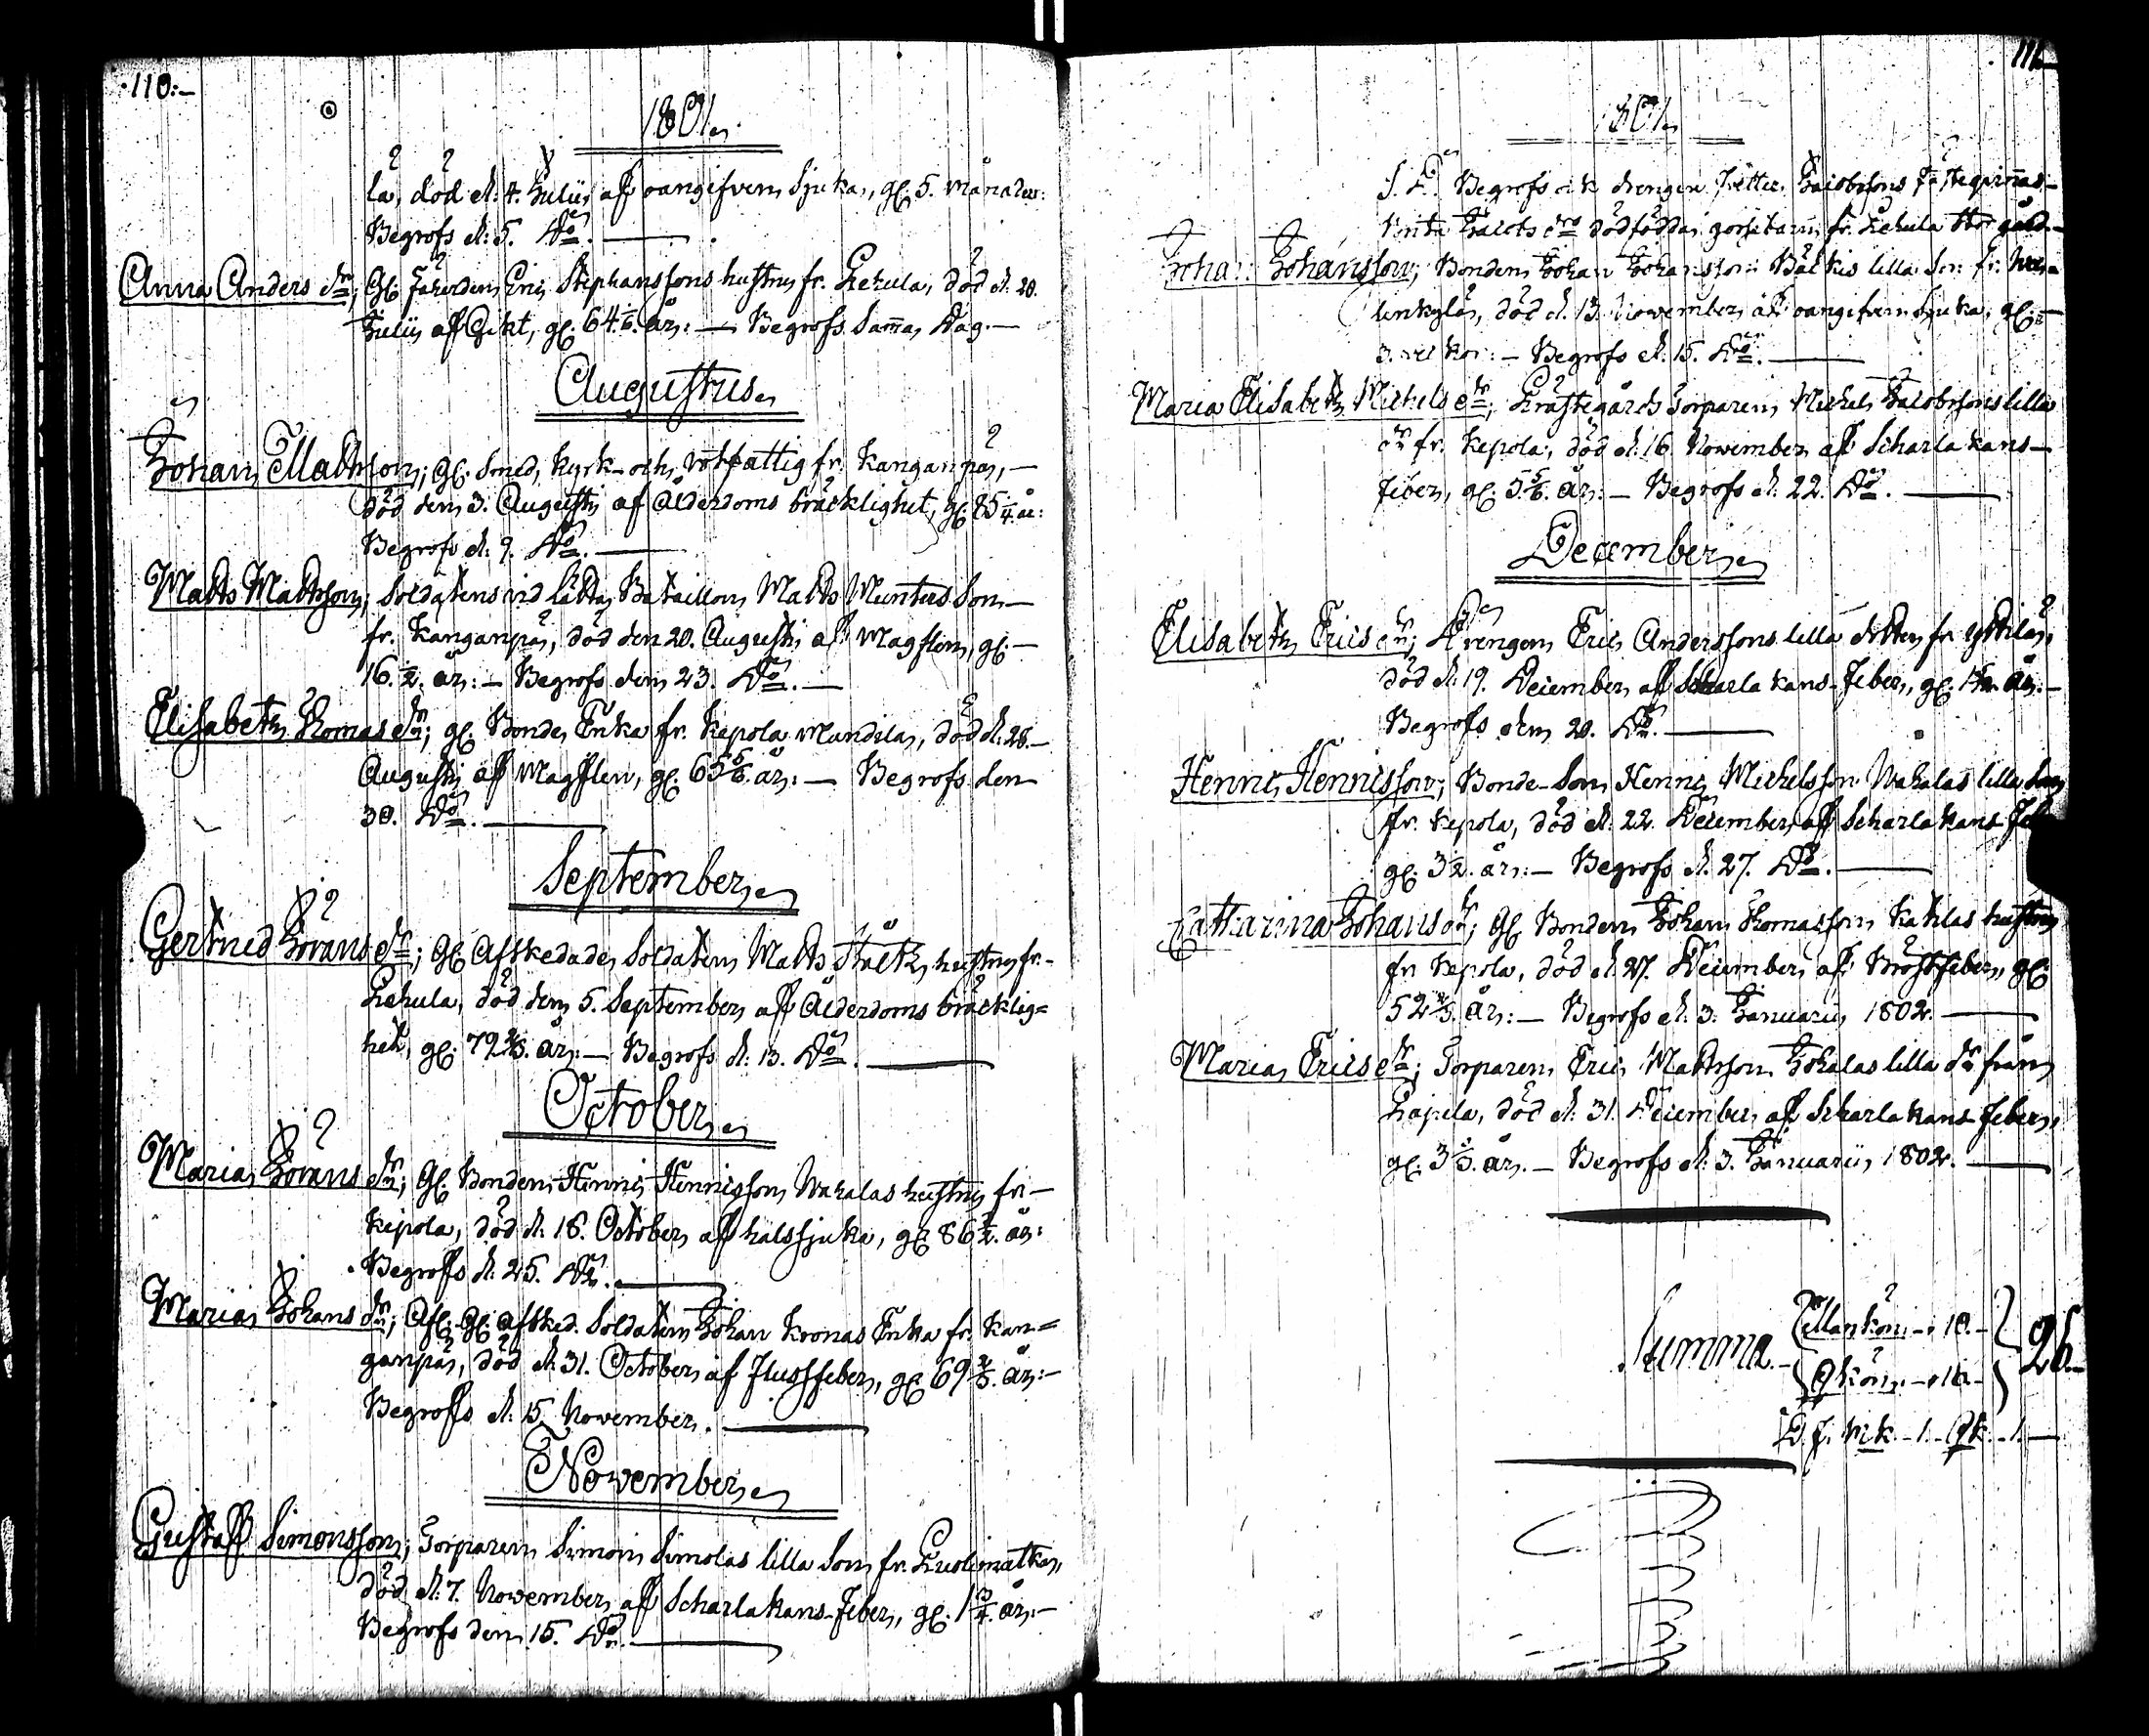 110.
1801.
la, död d: 4. Julii, af oangifven Sjuka, gl: 5. månader:
Begrofs d: 5. Do.
Anna Anders dr; Gl: Fahnden Eric Stephanssons hustru fr. Lehula, död d. 20.
Julii af Gikt, gl: 64 1/6. år: — Begrofs Samma Dag.
Augustus
Johan Mattsson; gl: Smed, kyrk- och rotfattig fr. Kanganpä,
död den 3. Augusti af Ålderdoms bräcklighet, gl: 85 1/4. år:
Begrofs d: 9. Do.
Matts Mattsson; Soldatens vid lätta Bataillon Matts Munters Son
fr. Kanganpä, död den 20. Augusti af Magflen, gl:
16 1/2. år: — Begrofs den 23. Do.
Elisabeth Thomas dr; gl. Bonde Enka fr. Kepola Mundila, död d. 28.
Augusti af Magflen, gl: 65 5/6. år: — Begrofs den
30. Do.
September
Gertrued Görans dr; Gl: Afskedade Soldaten Matts Stålts hustru fr.
Lehula, död den 5. September af Ålderdoms bräcklig=
het, gl: 79 2/3. år: — Begrofs d: 13. Do.
October
Maria Görans dr; Gl. Bonden Henric Henricsson Wahalas hustru fr.
Kepola, död d. 18. October af halssjuka, gl: 86 1/2. år:
Begrofs d: 25. Do.
Maria Johans dr; Afl. gl. afsked. Soldaten Johan Kronas Enka fr. Kan=
ganpä, död d. 31. October af Flussfeber, gl: 69 2/3. år:
Begrofs d: 15 November.
November
Gustaff Simonsson; Torparen Simon Simolas lilla Son fr. Luolimatka,
död d. 7. November af Scharlakans-Feber, gl: 1 3/4. år:
Begrofs den 15. Do.
111.
1801.
S. D. Begrofs ock drengen Petter Jacobssons Fästeqvinnas
Brita Jacobs drs dödfödda gossebarn fr. Lehula
Johan Johansson; Bonden Johan Johansson lilla Son fr.
linkylä, död d. 13. November af oangifven Sjuka, gl:
3. veckor: — Begrofs d: 15. Do.
Maria Elisabeth Michels dr; Prästegårds Torparen Michel Jacobssons lilla
dr fr. Kepola, död d. 16. November af Scharlakans-
feber, gl: 5 5/6. år: — Begrofs d. 22. Do.
December
Elisabeth Erics dr; Drengen Eric Anderssons lilla dotter fr. Yttilä,
död d. 19. December af Scharlakans-Feber, gl: år:
Begrofs den 20. Do.
Henric Henricsson; Bonde-Son Henric Michelsson Wahalas lilla Son
fr. Kepola, död d. 22. December af Scharlakans
gl: 3 1/2. år: — Begrofs d. 27. Do.
Catharina Johans dr; gl. Bonden Johan Thomasson Katilas hustru
fr Kepola, död d. 27. December af Bröstfeber, gl:
52 2/3. år: — Begrofs d: 3. Januarii, 1802.
Maria Erics dr; Torparen Eric Mattsson Jokalas lilla dr från
Lajula, död d. 31. December af Scharlakans-Feber,
gl: 3 1/3. år. — Begrofs d: 3. Januarii, 1802.
Mankön. — 10.
Summa. 26.
Qkön. — 16.
D. f. Mk. — 1. Qk. — 1.